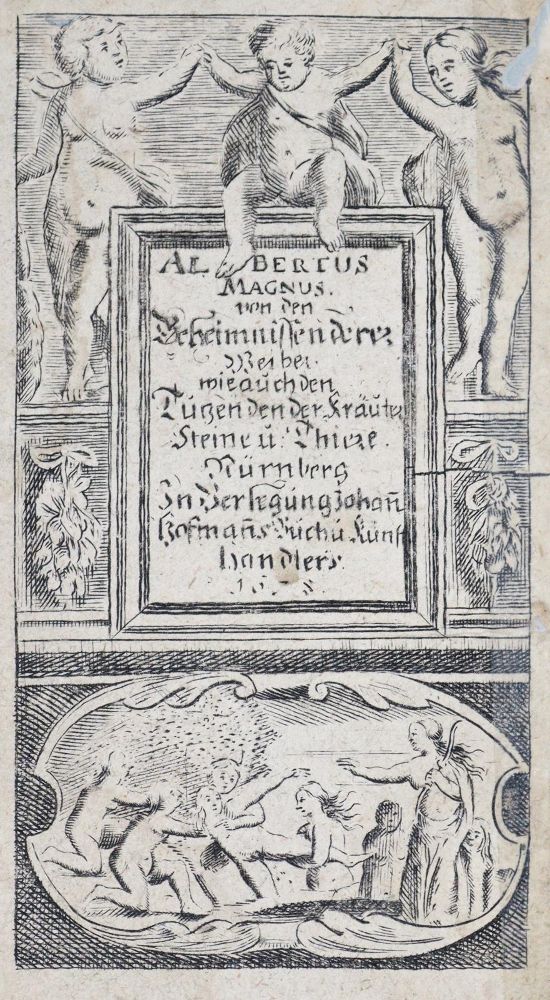 ALBERTUS
MAGNUS.
von den
Geheimnissen derer
Weiber.
wie auch den
Tugenden der Kräuter
Steine u. Thiere.
Nürnberg
In Verlegung Johañ
Hofmañs Buch u Kunst
handlers.